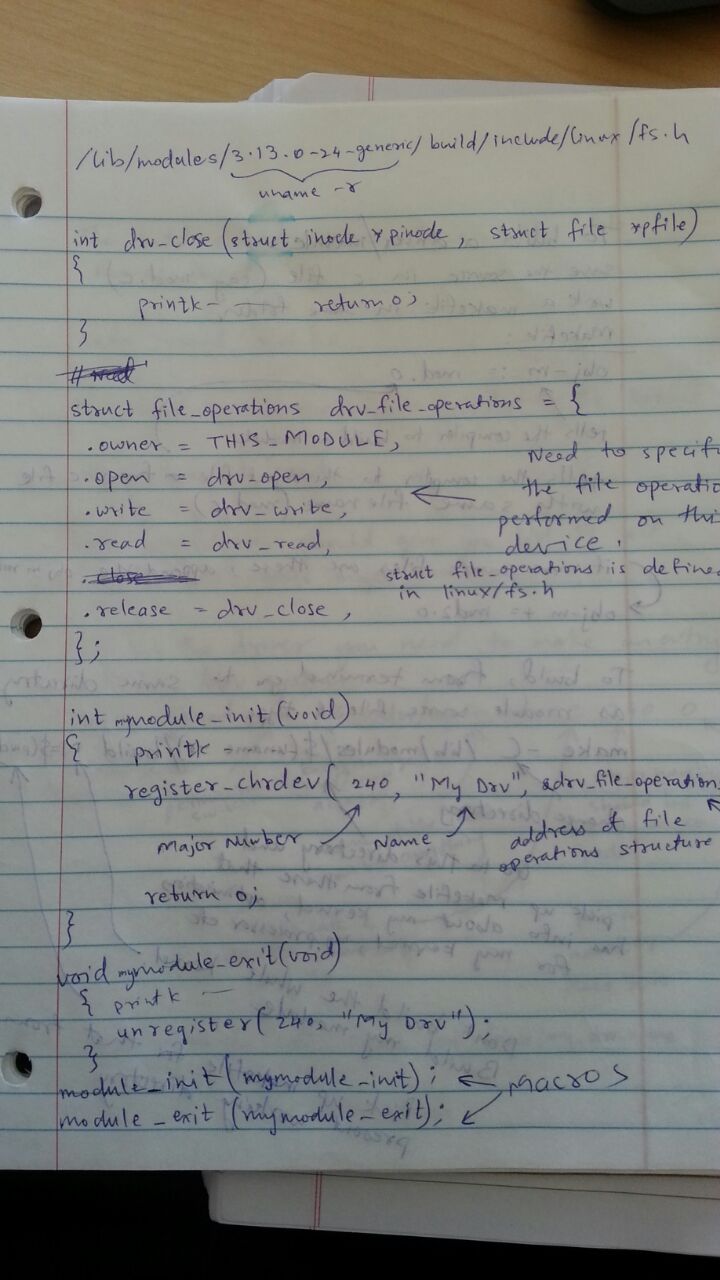 /lib/modules/3.13.0-24-generic/build/include/linux/fs.h
uname -r
int drv_close (struct inode *pinode, struct file *pfile)
{
printk- — return 0;
}
struct file_operations drv_file_operations = {
.owner = THIS_MODULE,
.open = drv_open,
.write = drv_write,
.read = drv_read,
.close
.release = drv_close,
};
Need to specif
the file operatio
performed on thi
device.
struct file_operations is define
in linux/fs.h
int mymodule_init(void)
{ printk -
register_chrdev( 240, "My Drv", &drv_file_operation
Major Number
Name
address of file
operations structure
return 0;
}
void mymodule_exit(void)
{ printk —
unregister( 240, "My Drv");
}
module_init (mymodule_init); ← Macros
module_exit (mymodule_exit);